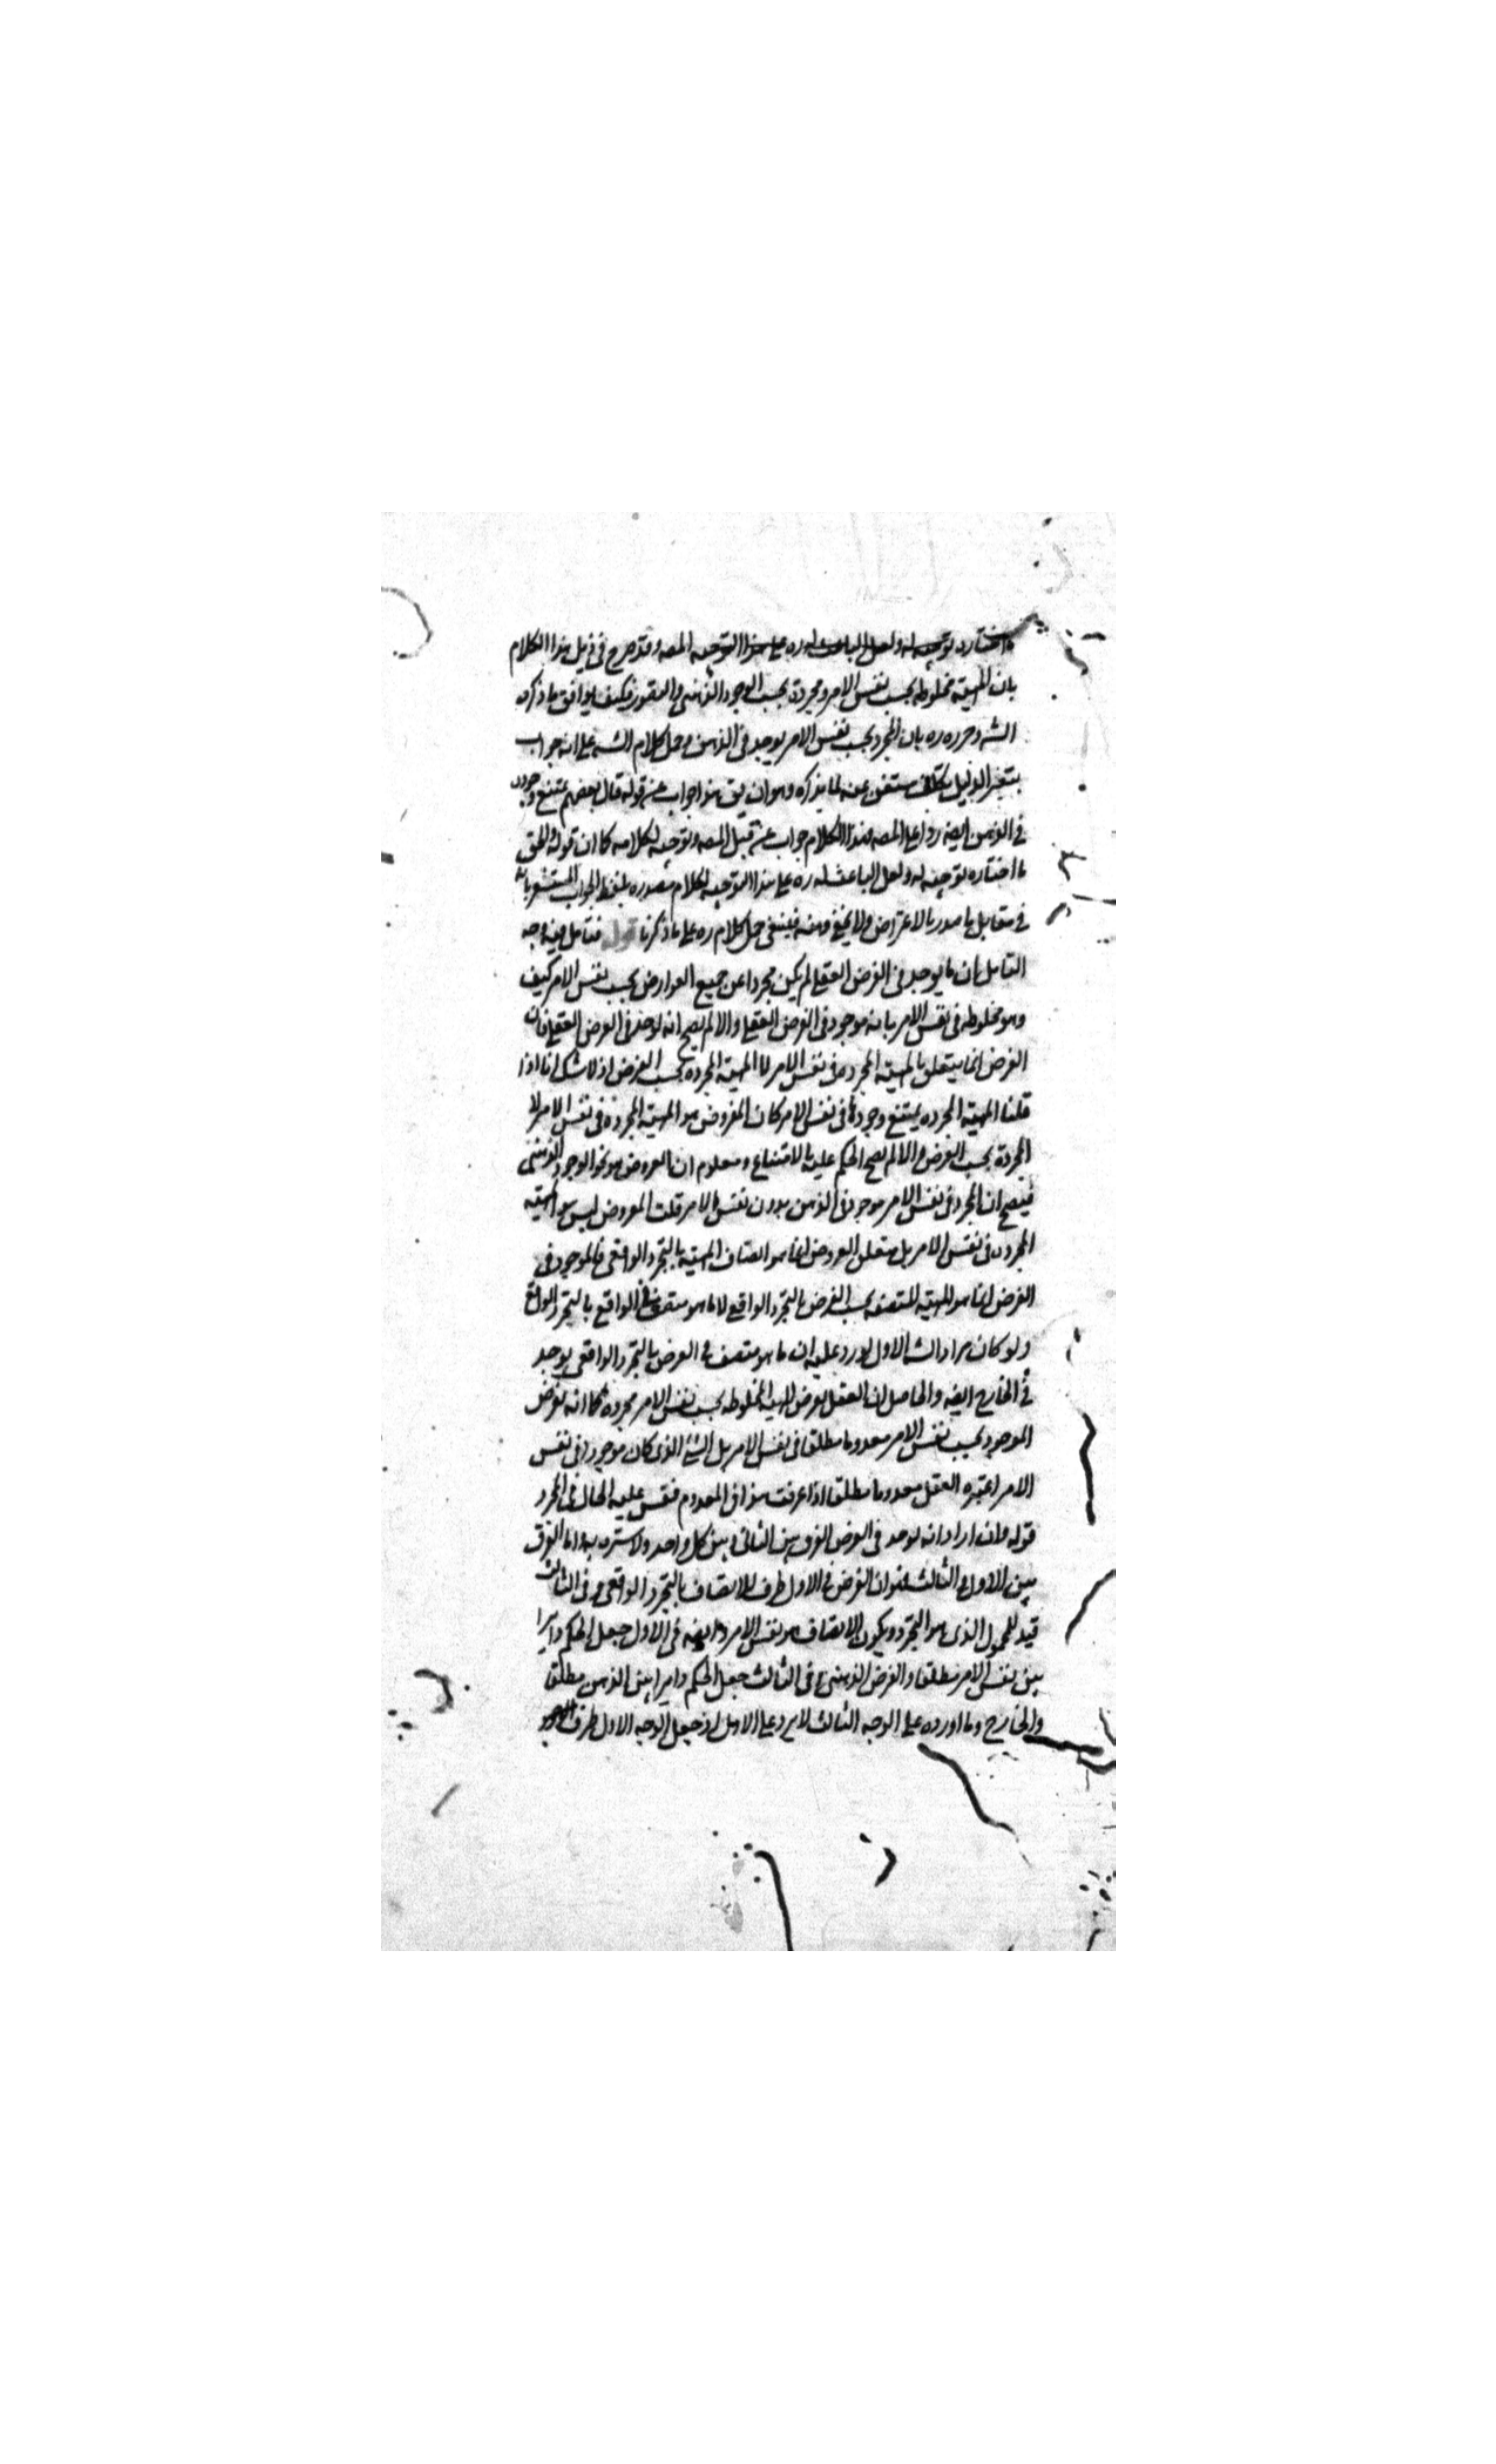 ما اختاره توجيه له ولعل الباعث له ره على هذا التوجيه المصه وقد صرح فى ذيل هذا الكلام
بان المهية مخلوطه بحسب نفس الامر ومجردة بحسب الوجود الذهنى والتصور فكيف يوافق ما ذكره
الشه وحرره ره بان المجرد بحسب نفس الامر يوجد فى الذهن وحمل كلام الشه على انه جواب
بتغير الدليل تكلف مستغن عنه لما يذكره وهو ان يق هذا جواب عن قوله قال بعضهم يمتنع وجوده
فى الذهن ايضه ردا على المصه فهذا الكلام جواب عن قبل المصه وتوجيه لكلامه كما ان قوله الحق
ما اختاره توجيه له ولعل الباعث له ره على هذا التوجيه لكلام مصدره بلفظ الجواب المستشعر بانه
فى مقابل ما صدر بالاعتراض ولا يخفى وهنه فينبغى حمل كلام ره على ما ذكرنا قوله فتامل فيه وجه
التامل ان ما يوجد فى الفرض العقلى لم يكن مجردا عن جميع العوارض بحسب نفس الامر كيف
وهو مخلوطه فى نفس الامر بانه موجود فى الفرض العقلى والا لم يصح انه يوجد فى الفرض العقلى فان
الفرض انما يتعلق بالمهية المجرده فى نفس الامر لا المهية المجرده بحسب الفرض اذ لا شك انا اذا
قلنا المهية المجرده يمتنع وجودها فى نفس الامر كان المفروض هو المهية المجرده فى نفس الامر لا
المجردة بحسب الفرض والا لم يصح الحكم عليه بالامتناع ومعلوم ان الفرض هو نحو الوجود الذهنى
فيصح ان المجرد فى نفس الامر موجود فى الذهن بدون نفس الامر قلت المفروض ليس هو المهية
المجرده فى نفس الامر بل متعلق الفرض انما هو اتصاف المهية بالتجرد الواقعى فالموجود فى
الفرض انما هو المهية المتصفه بحسب الفرض بالتجرد الواقعى لا ما هو متصف فى الواقع بالتجرد الواقعى
ولو كان مراد الشه الاول لورد عليه ان ما هو متصف فى الفرض بالتجرد الواقعى يوجد
فى الخارج ايضه والحاصل ان العقل يفرض المهية المخلوطه بحسب نفس الامر مجرده كما انه يفرض
الموجود بحسب نفس الامر معدوما مطلقا فى نفس الامر بل الشئ الذى كان موجودا فى نفس
الامر اعتبره العقل معدوما مطلقا اذا عرفت هذا فى المعدوم فقس عليه الحال فى المجرد
قوله وان اراد انه يوجد فى الفرض الفرق بين الثانى وبين كل واحد ولا سترة به واما الفرق
بين الاول والثالث فهو ان الفرض فى الاول ظرف للاتصاف بالتجرد الواقعى وفى الثالث
قيد للمحمول الذى هو التجرد ويكون الاتصاف هو نفس الامر وايضه فى الاول جعل الحكم دايرا
بين نفس الامر مطلقا والفرض الذهنى وفى الثالث جعل الحكم دايرا بين الذهن مطلقا
والخارج وما اورده على الوجه الثالث لا يرد على الاول اذ جعل الوجه الاول ظرف الوجود